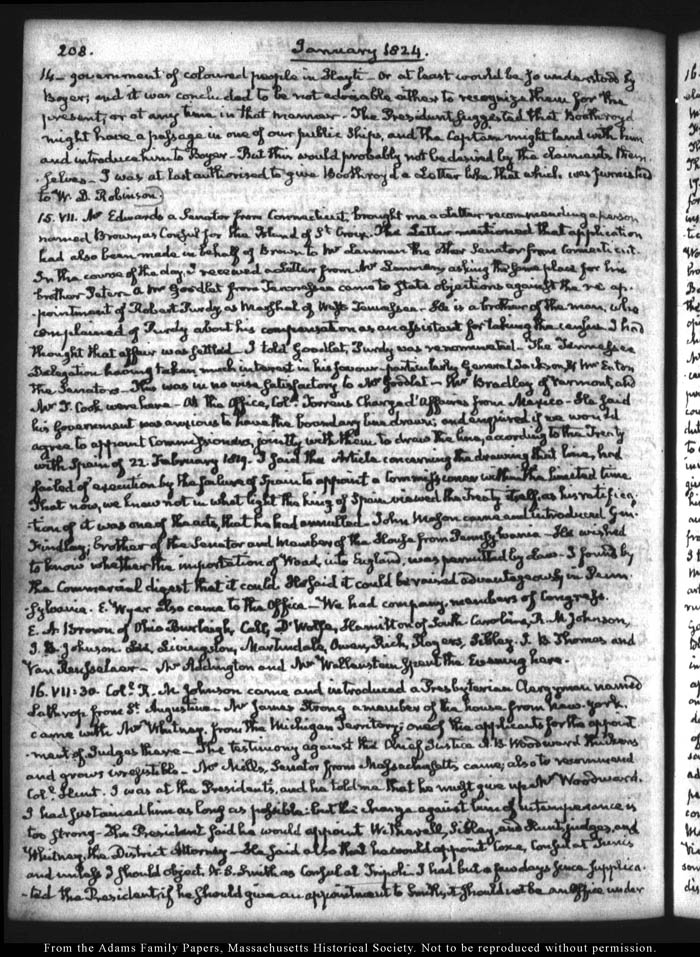 208. January 1824.
14 — government of coloured people in Hayti — or at least would be so understood by
Boyer; and it was concluded to be not advisable either to recognize them for the
present, or at any time in that manner — The President suggested that Boothroyd
might have a passage in one of our public Ships, and the Captain might land with him
and introduce him to Boyer — But this would probably not be desired by the claimants them-
selves — I was at last authorised to give Boothroyd a Letter like that which was furnished
to W. D. Robinson.
15. VII. Mr Edwards a Senator from Connecticut, brought me a Letter recommending a person
named Brown, as Consul for the Island of St Croix. The Letter mentioned that application
had also been made in behalf of Brown to Mr Lanman the other Senator from Connecticut.
In the course of the day, I received a Letter from Mr Lanman, asking the same place for his
brother Peter. A Mr Goodlet from Tennessee came to state objections against the re-ap-
-pointment of Robert Purdy as Marshal of West Tennessee — He is a brother of the man, who
complained of Purdy about his compensation as an assistant for taking the census. I had
thought that affair was settled. I told Goodlet, Purdy was renominated — The Tennessee
Delegation having taken much interest in his favour — particularly General Jackson & Mr Eaton
the Senators — This was in no wise satisfactory to Mr Goodlet — Mr Bradley of Vermont, and
Mr D. Cook were here — At the Office, Col. Torrens Chargé d'Affaires from Mexico — He said
his Government was anxious to have the boundary line drawn; and enquired if we would
agree to appoint Commissioners, jointly with them to draw the line, according to the Treaty
with Spain of 22. February 1819. I said the Article concerning the drawing that line, had
failed of execution by the failure of Spain to appoint a Commissioner within the limited time
That now, we knew not in what light the king of Spain viewed the Treaty itself, as his ratifica-
-tion of it was one of the acts, that he had annulled — John Mason came and introduced Genl
Findlay, brother of the Senator and Member of the House from Pennsylvania — He wished
to know whether the importation of Woad, into England, was permitted by Law — I found by
the Commercial digest that it could. He said it could be raised advantageously in Penn-
-sylvania. E. Wyer also came to the Office — We had company members of Congress.
E. A. Brown of Ohio, Burleigh, Call, D'Wolfe, Hamilton of South Carolina, R. M. Johnson,
J. T. Johnson, Lee, Livingston, Martindale, Owen, Rich, Rogers, Sibley, J. B. Thomas and
Van Rensselaer — Mr Addington and Mr Wallenstein spent the Evening here.
16. VII:30. Col. R. M. Johnson came and introduced a Presbyterian Clergyman named
Lathrop from St. Augustine — Mr James Strong a member of the house from New-York,
came with Mr Whitney, from the Michigan Territory; one of the applicants for the appoint-
-ment of Judges there — The testimony against the Chief Justice A. B. Woodward thickens
and grows irresistible — Mr Mills, Senator from Massachusetts came; also to recommend
Col. Hunt. I was at the Presidents, and he told me that he must give up Mr Woodward.
I had sustained him as long as possible but the charge against him of intemperance is
too strong — The President said he would appoint Witherell, Sibley, and Hunt, judges, and
Whitney, the District Attorney — He said also that he would appoint Coxe, Consul at Tunis
and unless I should object, W. S. Smith as Consul at Tripoli — I had but a few days since supplica-
-ted the President, if he should give an appointment to Smith, it should not be an Office under
From the Adams Family Papers, Massachusetts Historical Society. Not to be reproduced without permission.